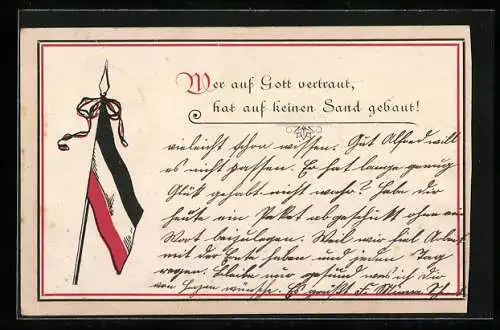 Wer auf Gott vertraut,
hat auf keinen Sand gebaut!
vieleicht schon wissen. Gut Alfred will
es nicht passen. Er hat lange genug
Glük gehabt nicht wahr? Habe dir
heute ein Paket abgeschickt ohne ein
Wort beizulegen. Weil wir fiel Arbeit
mit der Ernte haben und jeden Tag
regen. Bleibe nur gesund was ich dir
von Herzen wünsche. Es grüßt F.